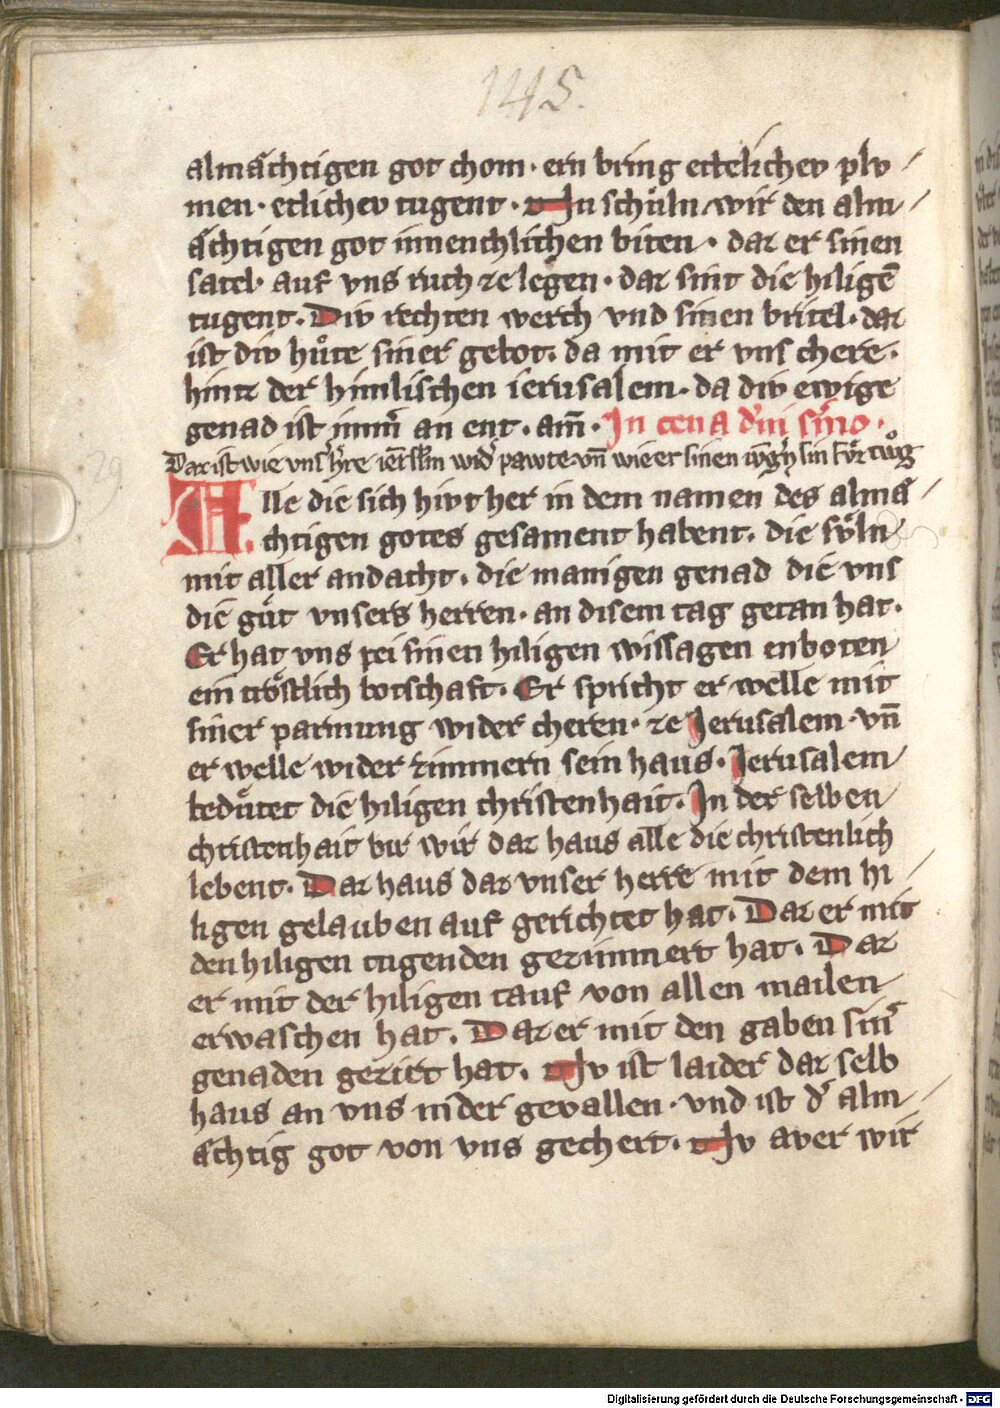 145.
almåchtigen got chom · ern bring ettelicher plv /
men · etlicher tugent · Nu schůln wir den alm /
åchtigen got innenchlichen biten · daz er sinen
satel · auf vns ruch ze legen · daz sint die hiligē
tugent · Div rechten werch vnd sinen britel · daz
ist div hůte siner gebot · da mit er vns chere ·
hintz der himlischen ierusalem · da div ewige
genad ist im̄ an ent · am̄ · In cena dñi s̄mo ·
Daz ist wie vns h're ier'lm wid' pawte vn̄ wie er sinen
Alle die sich hivt her in dem namen des almå /
chtigen gotes gesament habent · die sůln
mit aller andacht · die manigen genad die vns
die gůt vnsers herren · an disem tag getan hat ·
Er hat vns pei sinen hiligen wissagen enboten
ein tröstlich botschaft · Er spricht er welle mit
siner parmung wider cheren · ze Jerusalem · vn̄
er welle wider zimmern sein haus · Jerusalem
bedůtet die hiligen christenhait · In der selben
christenhait bir wir daz haus alle die christenlich
lebent · Daz haus daz vnser herre mit dem hi /
ligen gelauben auf gerichtet hat · Daz er mit
den hiligen tugenden gezimmert hat · Daz
er mit der hiligen tauf von allen mailen
erwaschen hat · Daz er mit den gaben sin'
genaden geziert hat · Nv ist laider daz selb
haus an vns nider gevallen · vnd ist d' alm /
åchtig got von vns gechert · Nv aver wir
29
Digitalisierung gefördert durch die Deutsche Forschungsgemeinschaft - DFG